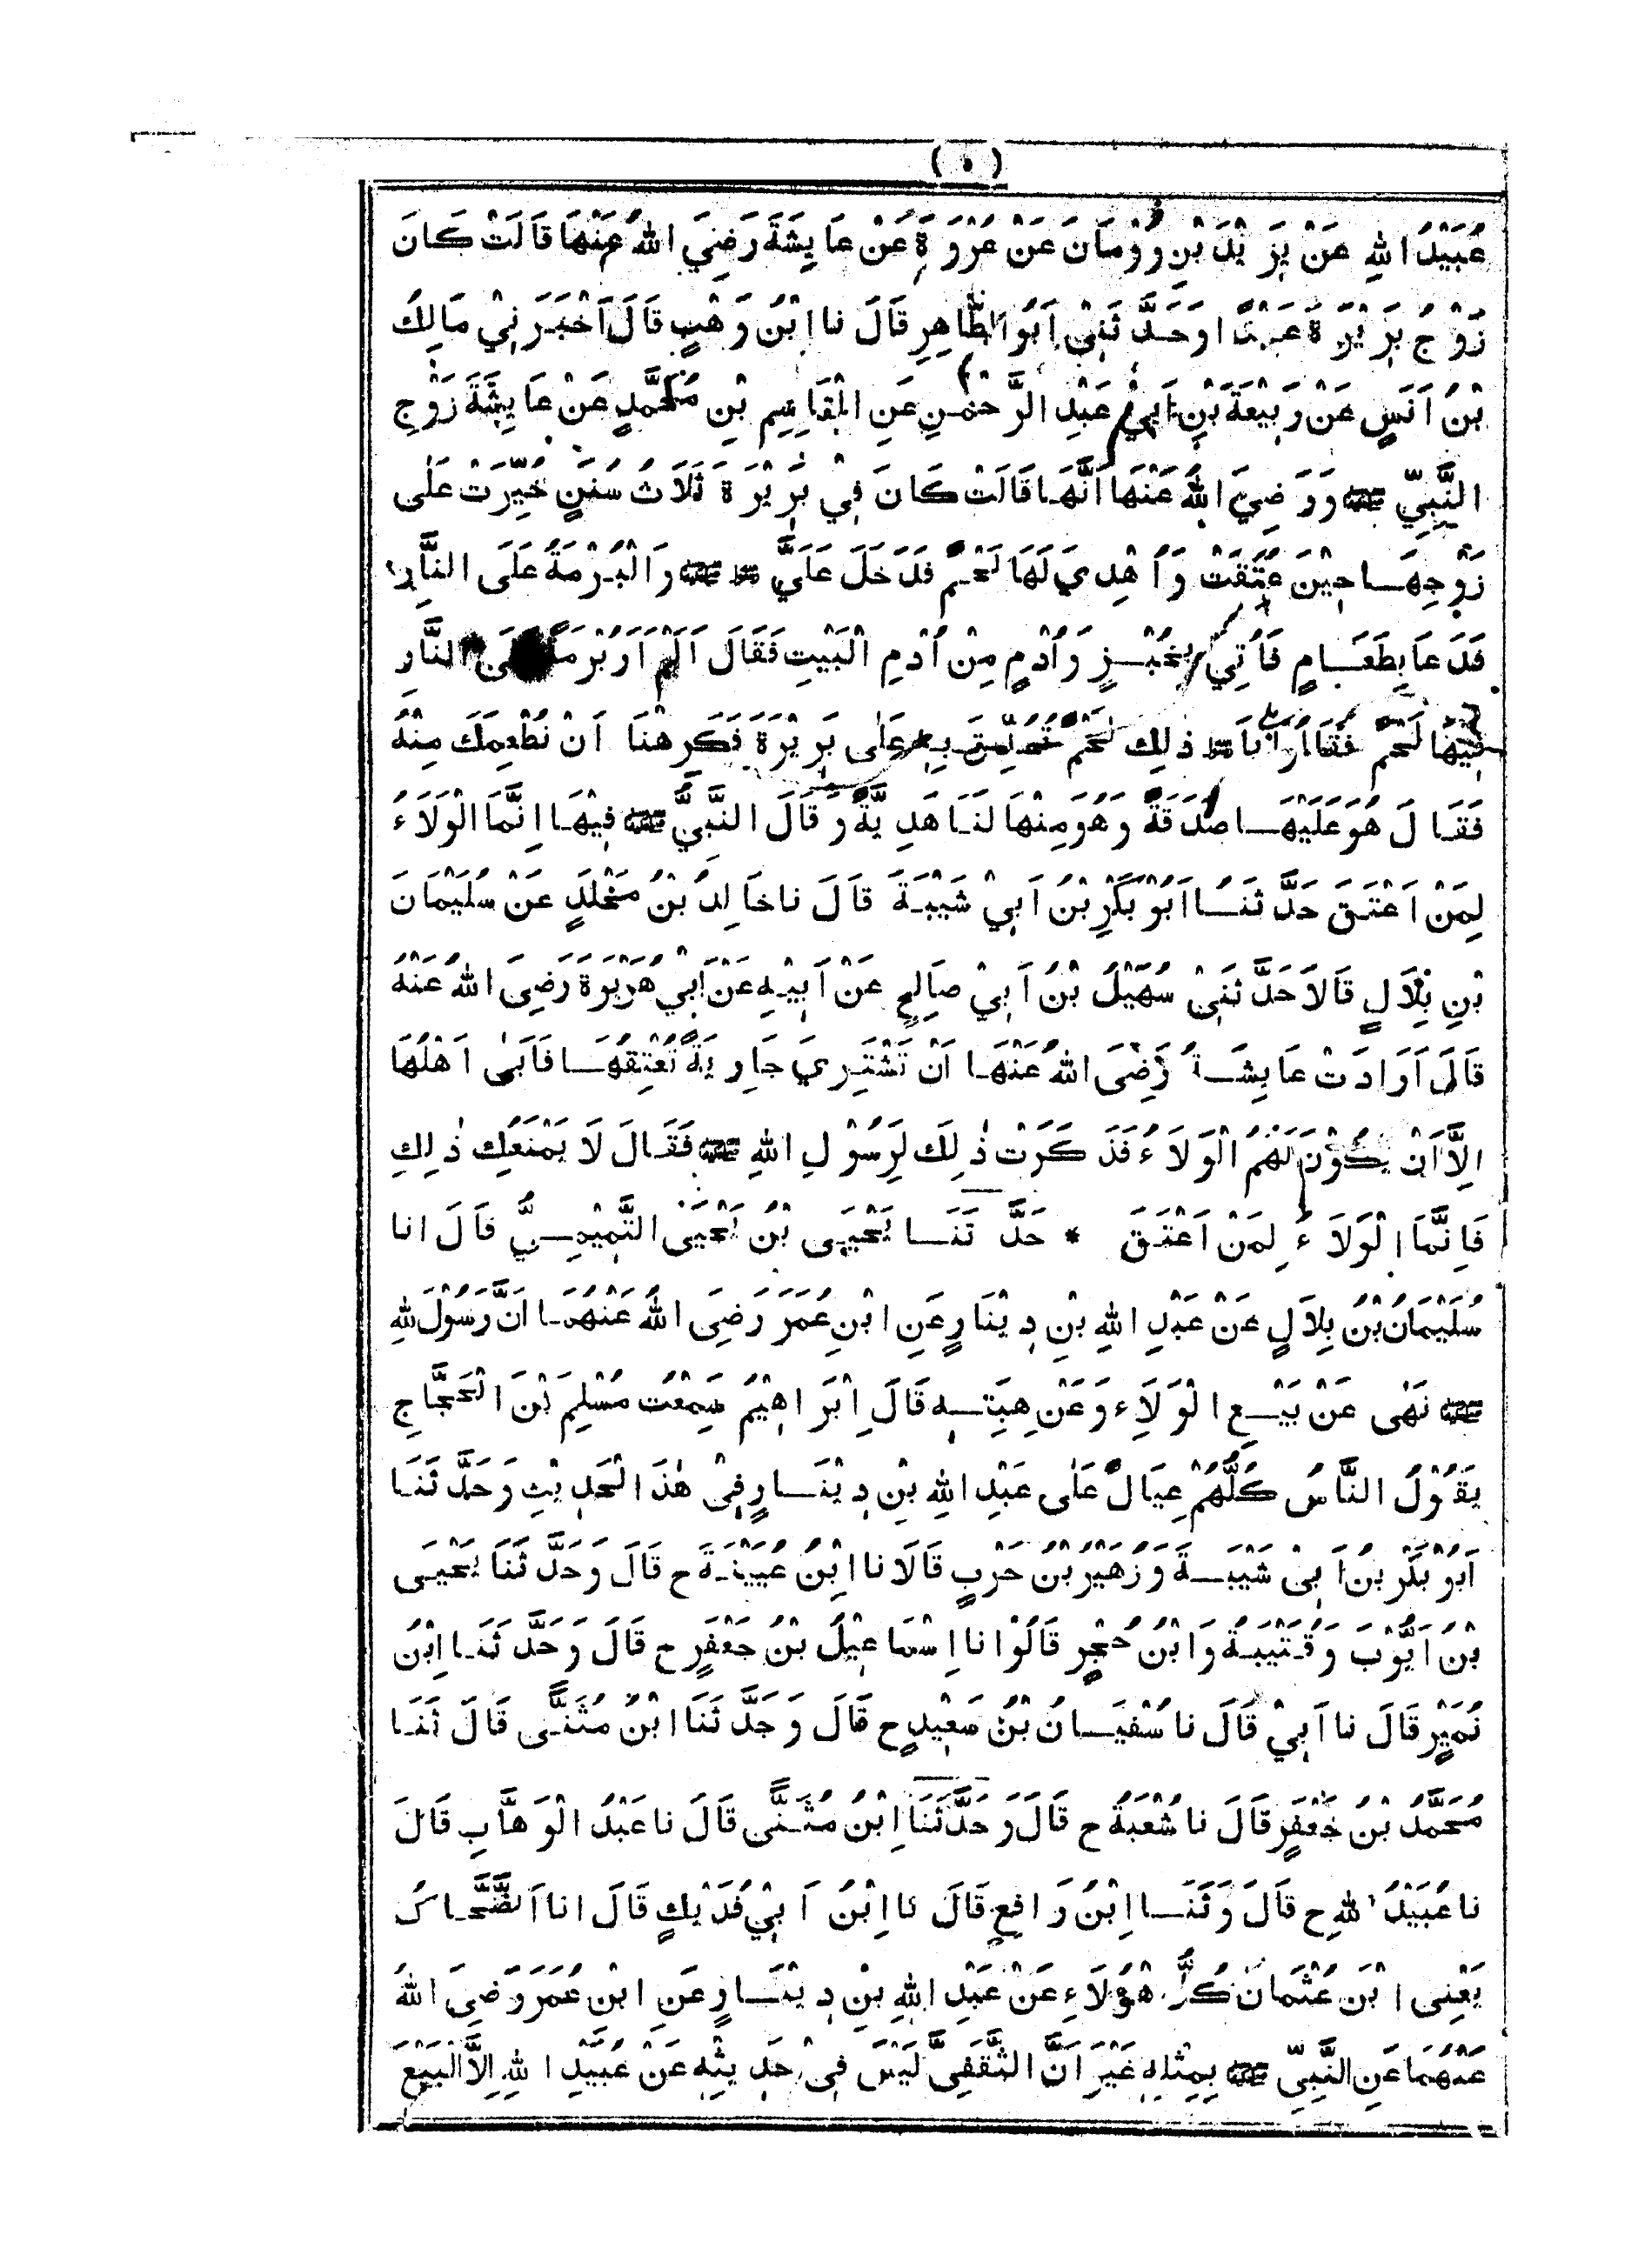 ( ٥ )
عُبَيْدُ اللهِ عَنْ يَزِيْدَ بْنِ رُوْمَانَ عَنْ عُرْوَةَ عَنْ عَايِشَةَ رَضِيَ اللهُ عَنْهَا قَالَتْ كَانَ
زَوْجُ بَرِيْرَةَ عَبْدًا وَحَدَّثَنِيْ اَبُوالطَّاهِرِ قَالَ نا ابْنُ وَهْبٍ قَالَ اَخْبَرَنِيْ مَالِكُ
بْنُ اَنَسٍ عَنْ رَبِيْعَةَ بْنِ اَبِيْ عَبْدِ الرَّحْمٰنِ عَنِ الْقَاسِمِ بْنِ مُحَمَّدٍ عَنْ عَايِشَةَ زَوْجِ
النَّبِيِّ ﷺ وَرَضِيَ اللهُ عَنْهَا اَنَّهَا قَالَتْ كَانَ فِيْ بَرِيْرَةَ ثَلَاثُ سُنَنٍ خُيِّرَتْ عَلٰى
زَوْجِهَا حِيْنَ عُتِقَتْ وَاُهْدِيَ لَهَا لَحْمٌ فَدَخَلَ عَلَيَّ ﷺ وَالْبُرْمَةُ عَلَى النَّارِ
فَدَعَا بِطَعَامٍ فَاُتِيَ بِخُبْزٍ وَاُدْمٍ مِنْ اُدْمِ الْبَيْتِ فَقَالَ اَلَمْ اَرَ بُرْمَةً عَلَى النَّارِ
فِيْهَا لَحْمٌ فَقَالُوْا بَلٰى ذٰلِكَ لَحْمٌ تُصُدِّقَ بِهٖ عَلٰى بَرِيْرَةَ فَكَرِهْنَا اَنْ نُطْعِمَكَ مِنْهُ
فَقَالَ هُوَ عَلَيْهَا صَدَقَةٌ وَهُوَ مِنْهَا لَنَا هَدِيَّةٌ وَقَالَ النَّبِيُّ ﷺ فِيْهَا اِنَّمَا الْوَلَاءُ
لِمَنْ اَعْتَقَ حَدَّثَنَا اَبُوْ بَكْرِ بْنُ اَبِيْ شَيْبَةَ قَالَ نا خَالِدُ بْنُ مَخْلَدٍ عَنْ سُلَيْمَانَ
بْنِ بِلَالٍ قَالَ حَدَّثَنِيْ سُهَيْلُ بْنُ اَبِيْ صَالِحٍ عَنْ اَبِيْهِ عَنْ اَبِيْ هُرَيْرَةَ رَضِيَ اللهُ عَنْهُ
قَالَ اَرَادَتْ عَايِشَةُ رَضِيَ اللهُ عَنْهَا اَنْ تَشْتَرِيَ جَارِيَةً تُعْتِقُهَا فَاَبٰى اَهْلُهَا
اِلَّا اَنْ يَكُوْنَ لَهُمُ الْوَلَاءُ فَذَكَرَتْ ذٰلِكَ لِرَسُوْلِ اللهِ ﷺ فَقَالَ لَا يَمْنَعُكِ ذٰلِكِ
فَاِنَّمَا الْوَلَاءُ لِمَنْ اَعْتَقَ * حَدَّثَنَا يَحْيٰى بْنُ يَحْيَى التَّمِيْمِيُّ قَالَ انا
سُلَيْمَانُ بْنُ بِلَالٍ عَنْ عَبْدِ اللهِ بْنِ دِيْنَارٍ عَنِ ابْنِ عُمَرَ رَضِيَ اللهُ عَنْهُمَا اَنَّ رَسُوْلَ اللهِ
ﷺ نَهٰى عَنْ بَيْعِ الْوَلَاءِ وَعَنْ هِبَتِهٖ قَالَ اِبْرَاهِيْمُ سَمِعْتُ مُسْلِمَ بْنَ الْحَجَّاجِ
يَقُوْلُ النَّاسُ كُلُّهُمْ عِيَالٌ عَلٰى عَبْدِ اللهِ بْنِ دِيْنَارٍ فِيْ هٰذَا الْحَدِيْثِ وَحَدَّثَنَا
اَبُوْ بَكْرِ بْنُ اَبِيْ شَيْبَةَ وَزُهَيْرُ بْنُ حَرْبٍ قَالَا نا ابْنُ عُيَيْنَةَ ح قَالَ وَحَدَّثَنَا يَحْيَى
بْنُ اَيُّوْبَ وَقُتَيْبَةُ وَابْنُ حُجْرٍ قَالُوْا نا اِسْمَاعِيْلُ بْنُ جَعْفَرٍ ح قَالَ وَحَدَّثَنَا ابْنُ
نُمَيْرٍ قَالَ نا اَبِيْ قَالَ نا سُفْيَانُ بْنُ سَعِيْدٍ ح قَالَ وَحَدَّثَنَا ابْنُ مُثَنَّى قَالَ ثَنَا
مُحَمَّدُ بْنُ جَعْفَرٍ قَالَ نا شُعْبَةُ ح قَالَ وَحَدَّثَنَا ابْنُ مُثَنَّى قَالَ نا عَبْدُ الْوَهَّابِ قَالَ
نا عُبَيْدُ اللهِ ح قَالَ وَثَنَا ابْنُ رَافِعٍ قَالَ نا ابْنُ اَبِيْ فُدَيْكٍ قَالَ انا الضَّحَّاكُ
يَعْنِى ابْنَ عُثْمَانَ كُلُّ هٰؤُلَاءِ عَنْ عَبْدِ اللهِ بْنِ دِيْنَارٍ عَنِ ابْنِ عُمَرَ رَضِيَ اللهُ
عَنْهُمَا عَنِ النَّبِيِّ ﷺ بِمِثْلِهٖ غَيْرَ اَنَّ الثَّقَفِيَّ لَيْسَ فِيْ حَدِيْثِهٖ عَنْ عُبَيْدِ اللهِ اِلَّا الْبَيْعَ